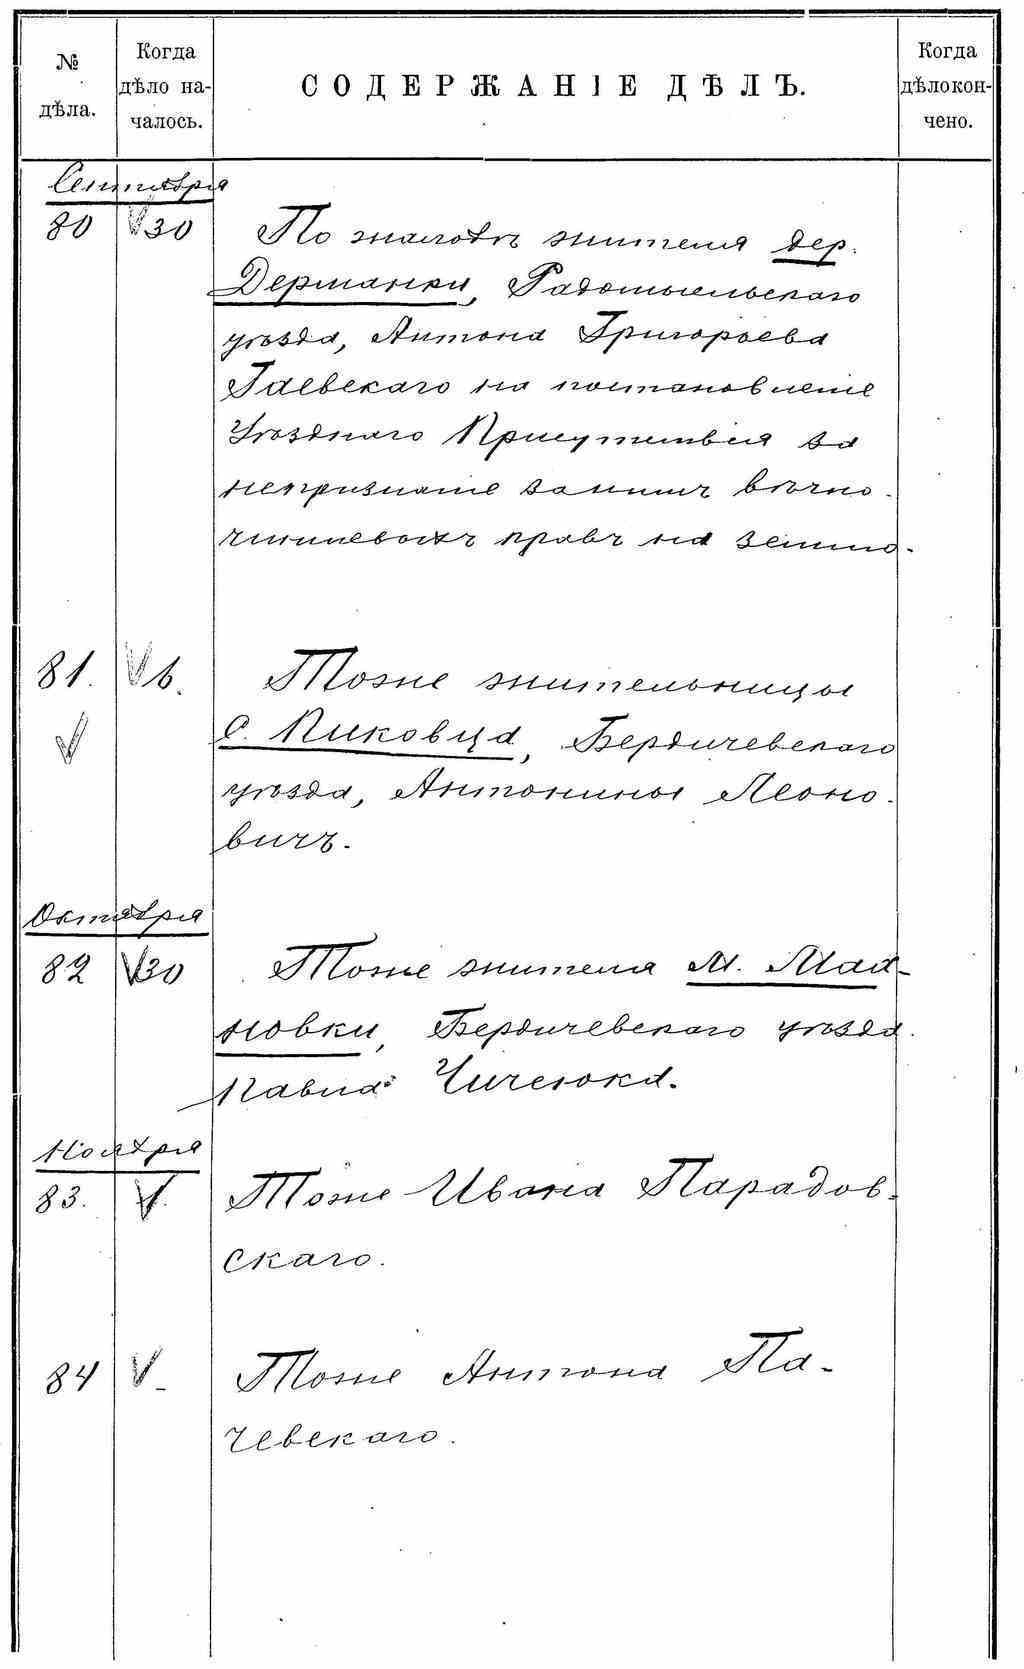 № дѣла.
Когда дѣло на-
чалось.
СОДЕРЖАНІЕ ДѢЛЪ.
Когда дѣло кон-
чено.
Сентября
80 30 По жалобѣ жителя дер.
Дерманки, Радомысльскаго
уѣзда, Антона Григорьева
Гаевскаго на постановленіе
Уѣзднаго Присутствія за
непризнаніе за нимъ вѣчно-
чиншевыхъ правъ на землю.
81. Тоже жительницы
с. Пиковца, Бердичевскаго
уѣзда, Антонины Леоно-
вичъ.
Октября
82 30 Тоже жителя м. Мах-
новки, Бердичевскаго уѣзда
Павла Чичеюка.
Ноября
83. Тоже Ивана Парадов-
скаго.
84 Тоже Антона Па-
чевскаго.